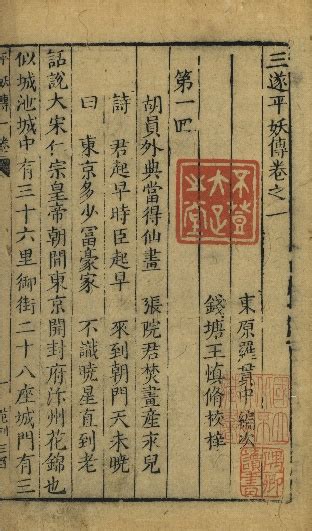 三遂平妖傳卷之一
東原羅貫中編次
錢塘王慎脩校梓
不登
大疋
之堂
第一回
胡員外典當得仙畫 張院君焚畫產永兒
詩 君起早時臣起早 來到朝門天未曉
曰 東京多少富豪家 不識曉星直到老
話說大宋仁宗皇帝朝間東京開封府汴州花錦也
似城池城中有三十六里御街二十八座城門有三
平妖傳 卷